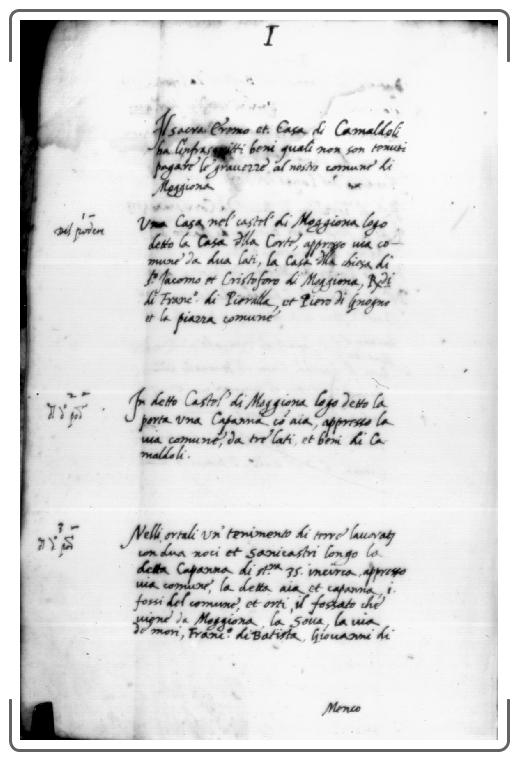 I
Il sacra Eremo et Casa di Camaldoli
ha l'infrascritti beni quali non son tenuti
pagare le gravezze al nostro comune di
Moggiona
1
nel podere
Una Casa nel castel di Moggiona logo
detto la Casa della Corte, appresso via co-
mune da dua lati, la Casa della chiesa di
sto Jacomo et Cristoforo di Moggiona, Redi
di Franco di Pieralla, et Piero di Gnogno
et la piazza comune
2
In detto Castel di Moggiona logo detto la
porta una Capanna co aia, appresso la
via comune, da tre lati, et beni di Ca
maldoli.
3
Nelli ortali un tenimento di terre lavorati
con dua noci et Sanicastri longo la
detta Capanna di 35. incirca, appresso
via comune, la detta aia et capanna, i
fossi del comune, et orti, il fossato che
viene da Moggiona, la Sova, la via
de mori, Franco di Batista, Giovanni di
Menco